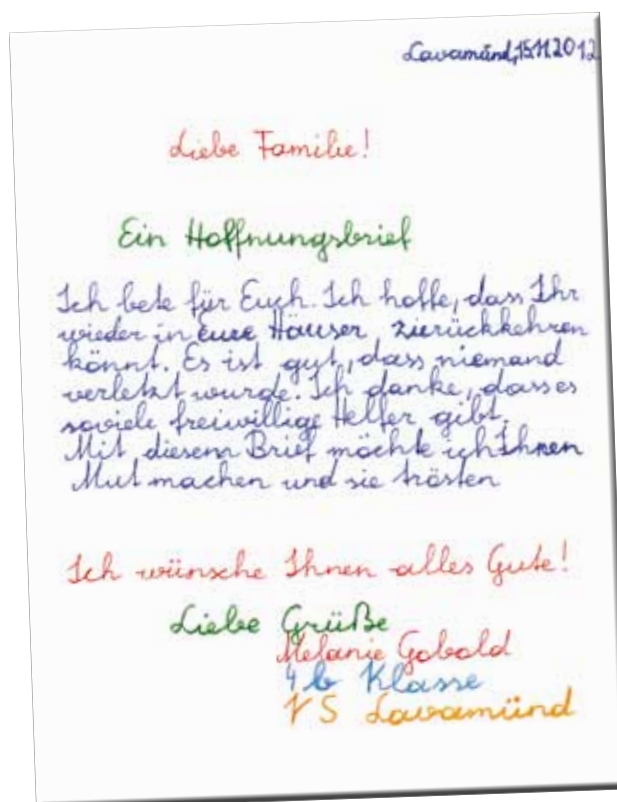 Lavamünd, 15.11.2012
Liebe Familie!
Ein Hoffnungsbrief
Ich bete für Euch. Ich hoffe, dass Ihr
wieder in eure Häuser zurückkehren
könnt. Es ist gut, dass niemand
verletzt wurde. Ich danke, dass es
soviele freiwillige Helfer gibt.
Mit diesem Brief möchte ich Ihnen
Mut machen und sie trösten
Ich wünsche Ihnen alles Gute!
Liebe Grüße
Melanie Gobold
4 b Klasse
VS Lavamünd